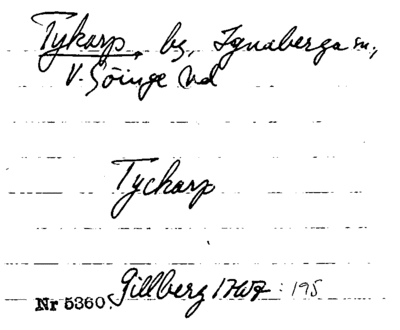 Tykarp, by, Ignaberga sn.,
V. Göinge hd
Tyckarp
Gillberg 1767: 195
Nr 5360.